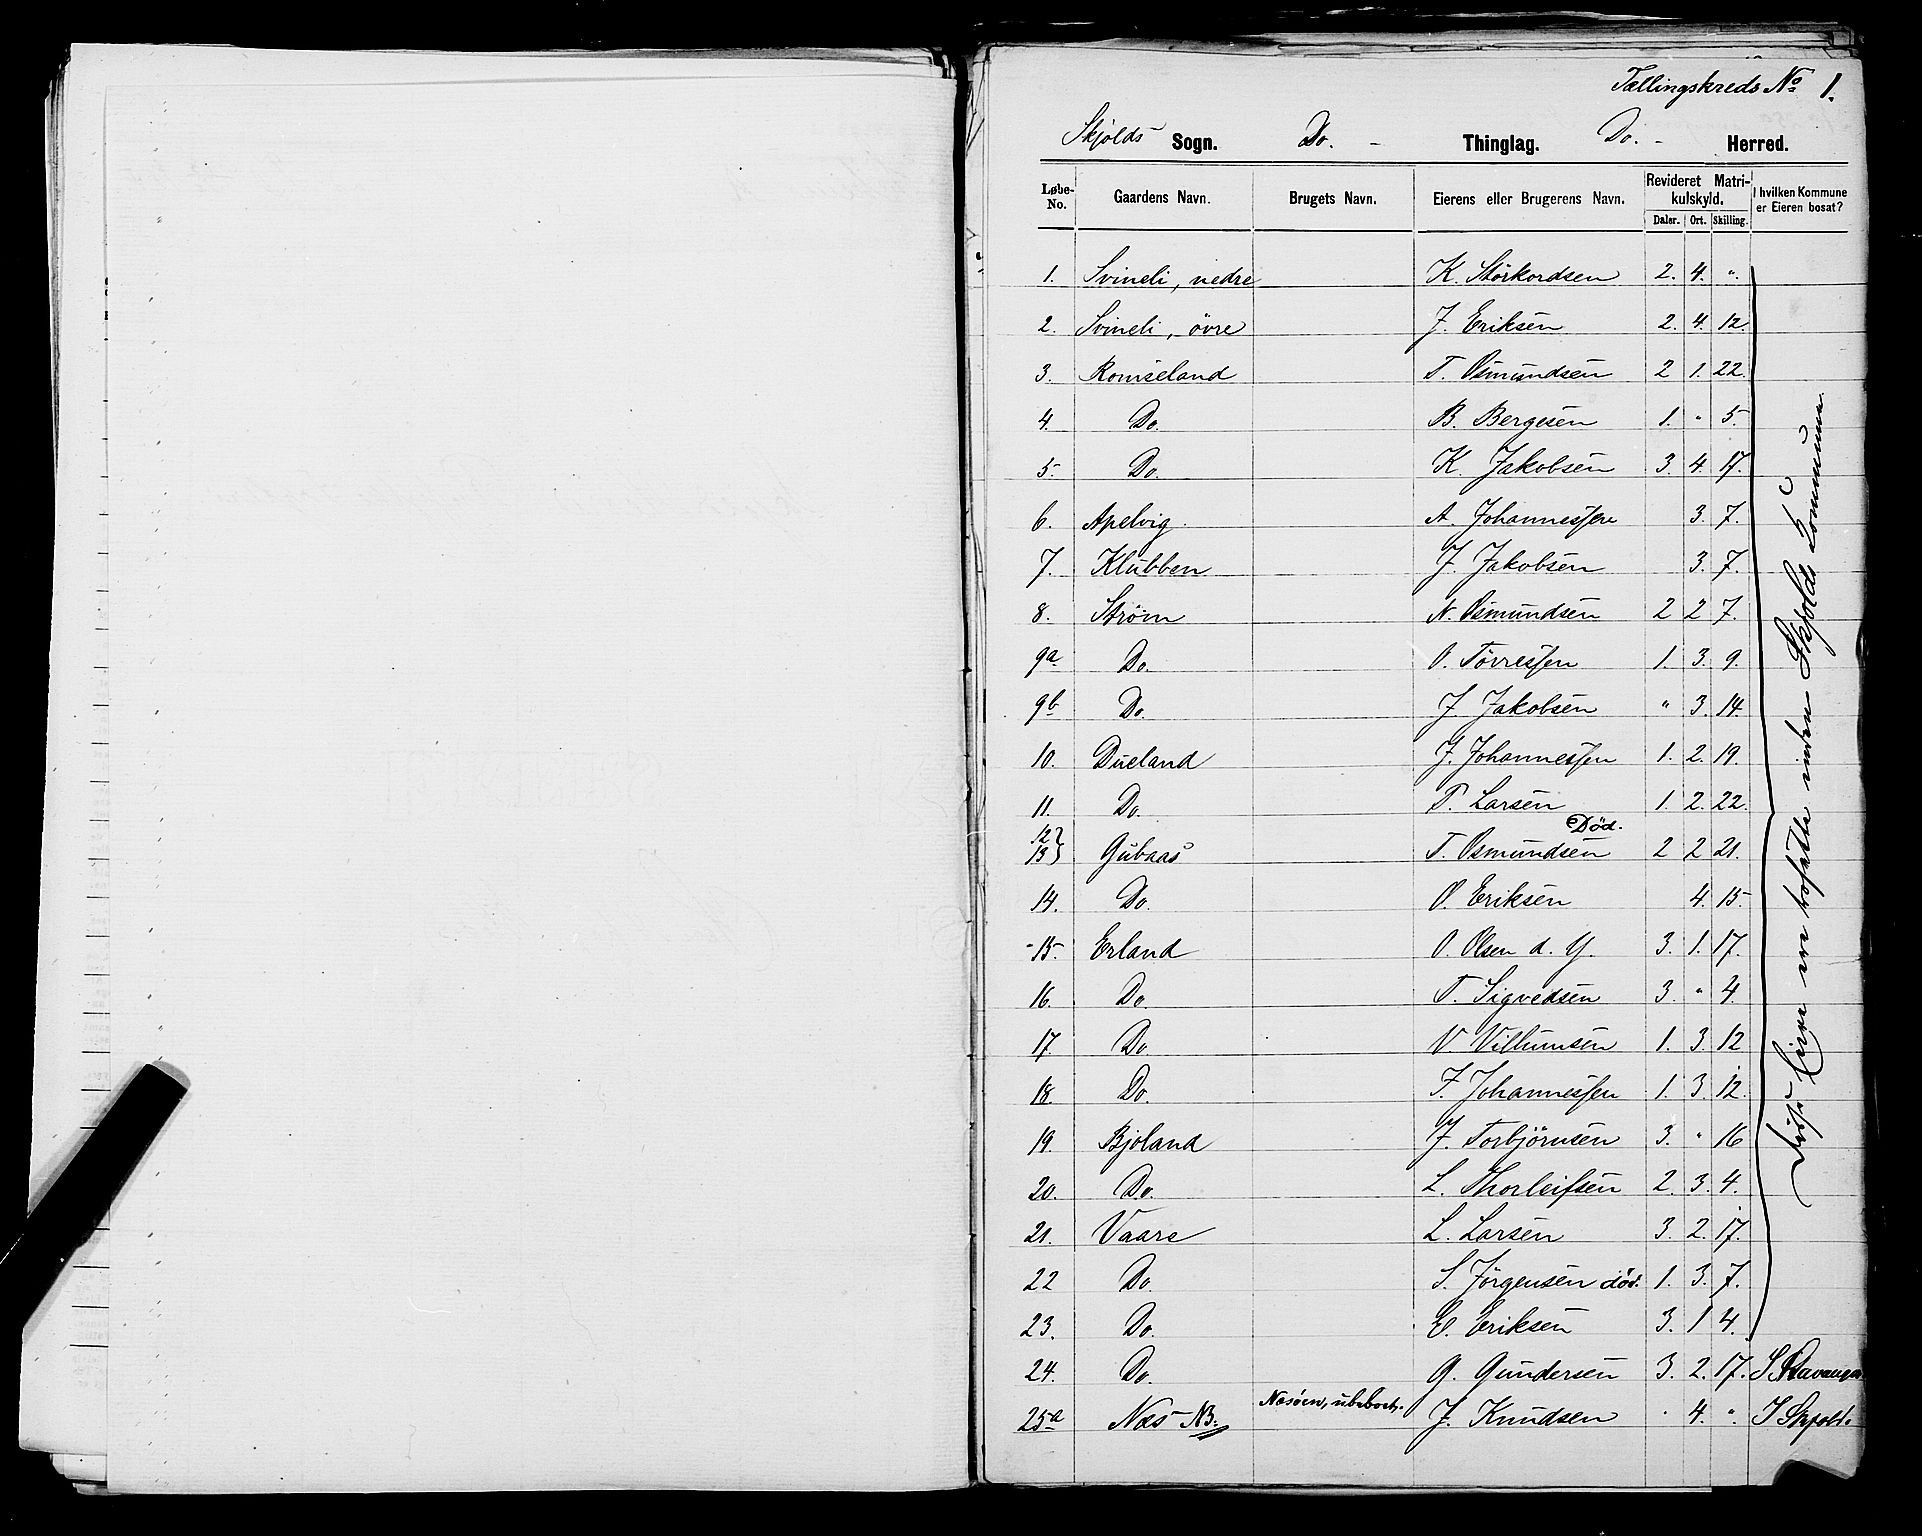 Tællingskreds No 1.
Skjolds Sogn. Do. - Thinglag. Do. - Herred.
Løbe-No. Gaardens Navn. Brugets Navn. Eierens eller Brugerens Navn. Revideret Matrikulskyld. Daler. Ort. Skilling. I hvilken Kommune er Eieren bosat?
1. Svineli, nedre K. Störkordsen 2. 4. "
2. Svineli, övre J. Eriksen 2. 4. 12.
3. Romseland T. Osmundsen 2 1. 22.
4. Do. B. Bergesen 1. " 5.
5. Do. K. Jakobsen 3. 4. 17.
6. Apelvig. A. Johannessen 3. 7.
7. Klubben J. Jakobsen 3. 7.
8. Strøm N. Osmundsen 2 2 7.
9a Do. O. Törressen 1. 3. 9.
9b Do. J. Jakobsen " 3. 14.
10. Dueland J. Johannessen 1. 2. 19.
11. Do. P. Larsen 1. 2. 22.
12 13 } Gubaas T. Osmundsen Död. 2 2 21.
14. Do. O. Eriksen 4. 15.
15. Erland O. Olsen d. Y. 3. 1. 17.
16. Do. T. Sigvedsen 3. " 4.
17. Do. V. Villumsen 1. 3. 12
18. Do. F. Johannessen 1. 3. 12.
19. Bjoland J. Torbjörnsen 3. " 16
20. Do. L. Thorleifsen 2. 3. 4.
21. Vaare L. Larsen 3. 2. 17.
22 Do. S. Jörgensen död. 1. 3. 7.
23. Do. E. Eriksen 3. 1 4.
24. Do. G. Gundersen 3. 2. 17. I Stavanger
25a Næs NB. Næsöen, ubeboet. J. Knudsen " 4. " I Skjold.
Disse Eiere ere bosatte inden Skjolds Kommune.